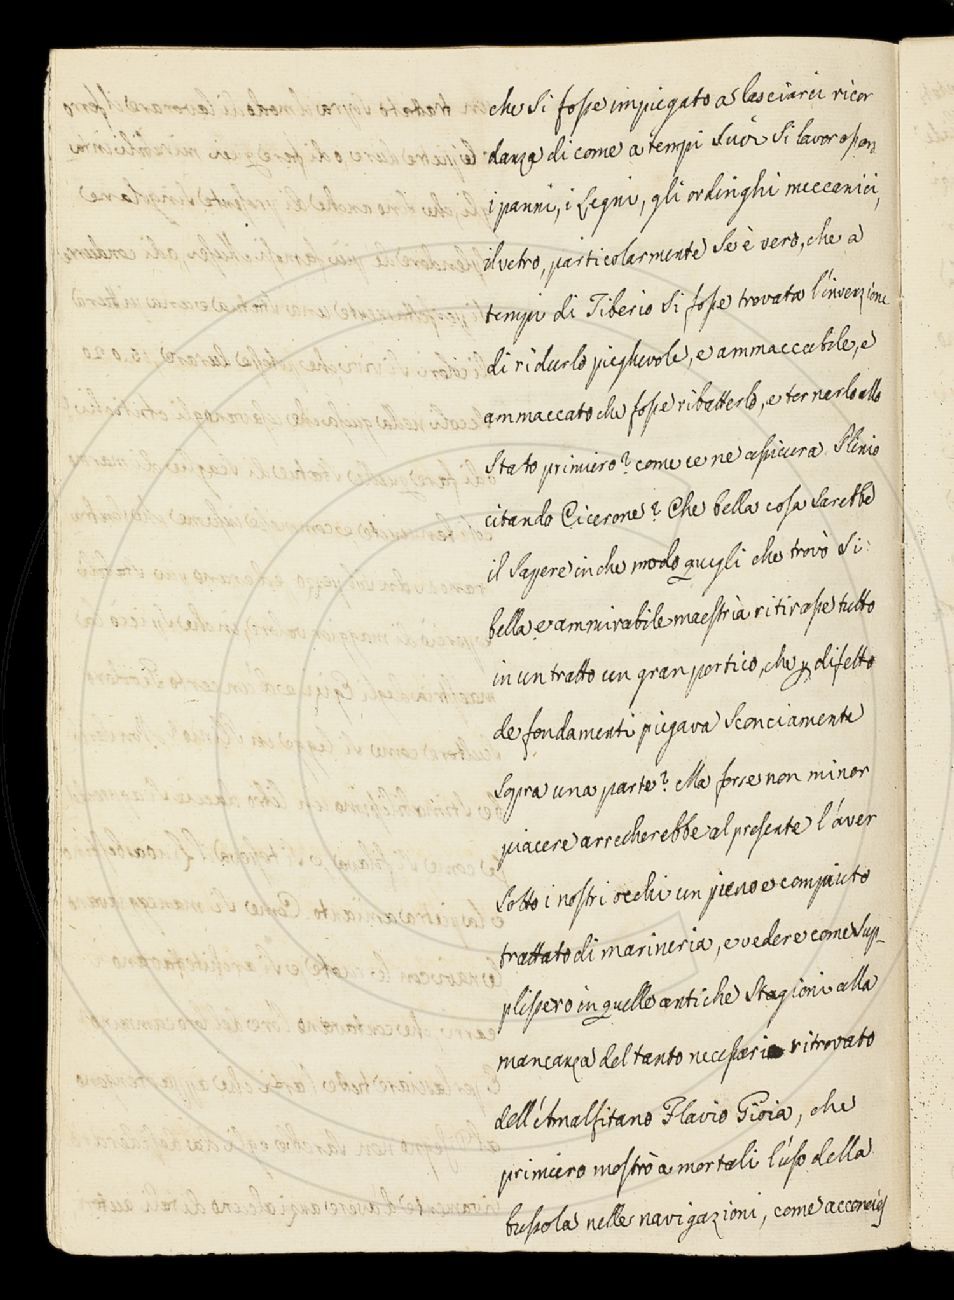 che si fosse impiegato a lasciarci ricor
danza di come a tempi suoi si lavorassen
i panni, i Legni, gli ordinghi meccanici,
il vetro, particolarmente se è vero, che a
tempi di Tiberio si fosse trovata l'invenzione
di ridurlo pieghevole, e ammaccabile, e
ammaccato che fosse ribatterlo, e tornarlo allo
stato primiero? come ce ne assicura Plinio
citando Cicerone? Che bella cosa sarebbe
il sapere in che modo quegli che trovò si
bella, e ammirabile maestria ritirasse tutto
in un tratto un gran portico, che p difetto
de fondamenti piegava sconciamente
sopra una parte? Ma forse non minor
piacere arrecherebbe al presente l'aver
sotto i nostri occhi un pieno e compiuto
trattato di marineria, e vedere come sup_
plissero in quelle antiche stagioni alla
mancanza del tanto necessario ritrovato
dell'Amalfitano Flavio Gioia, che
primiero mostrò a mortali l'uso della
bussola nelle navigazioni, come acconcias